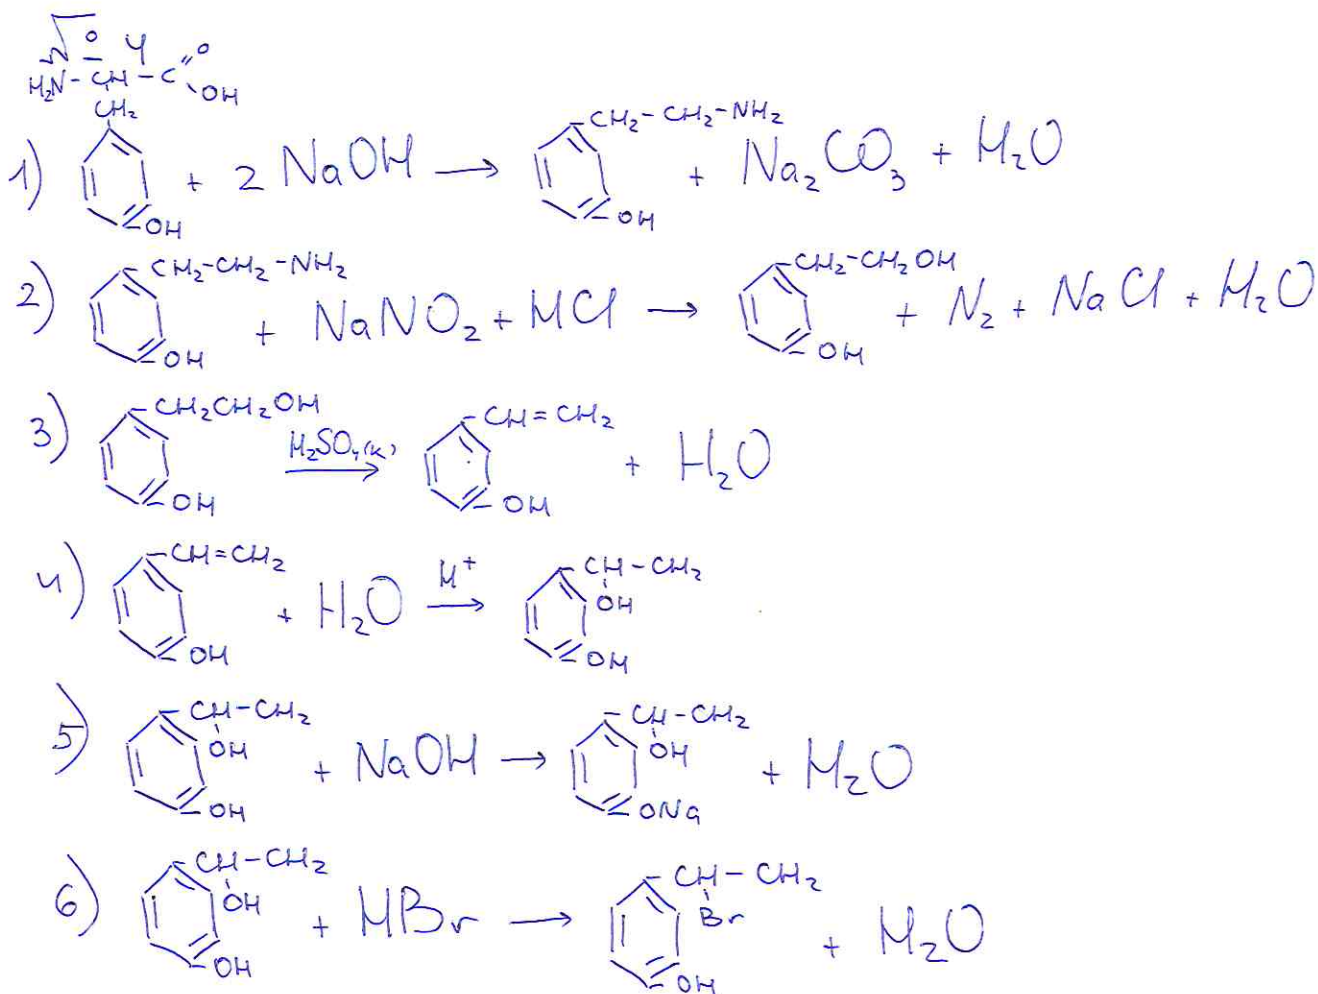 H₂N-CH-C=O
OH
CH₂
1) OH + 2 NaOH → CH₂-CH₂-NH₂ OH + Na₂CO₃ + H₂O
2) CH₂-CH₂-NH₂ OH + NaNO₂ + HCl → CH₂-CH₂OH OH + N₂ + NaCl + H₂O
3) CH₂CH₂OH OH H₂SO₄(к) → CH=CH₂ OH + H₂O
4) CH=CH₂ OH + H₂O H⁺ → CH-CH₂ OH OH
5) CH-CH₂ OH OH + NaOH → CH-CH₂ OH ONa + H₂O
6) CH-CH₂ OH OH + HBr → CH-CH₂ Br OH + H₂O